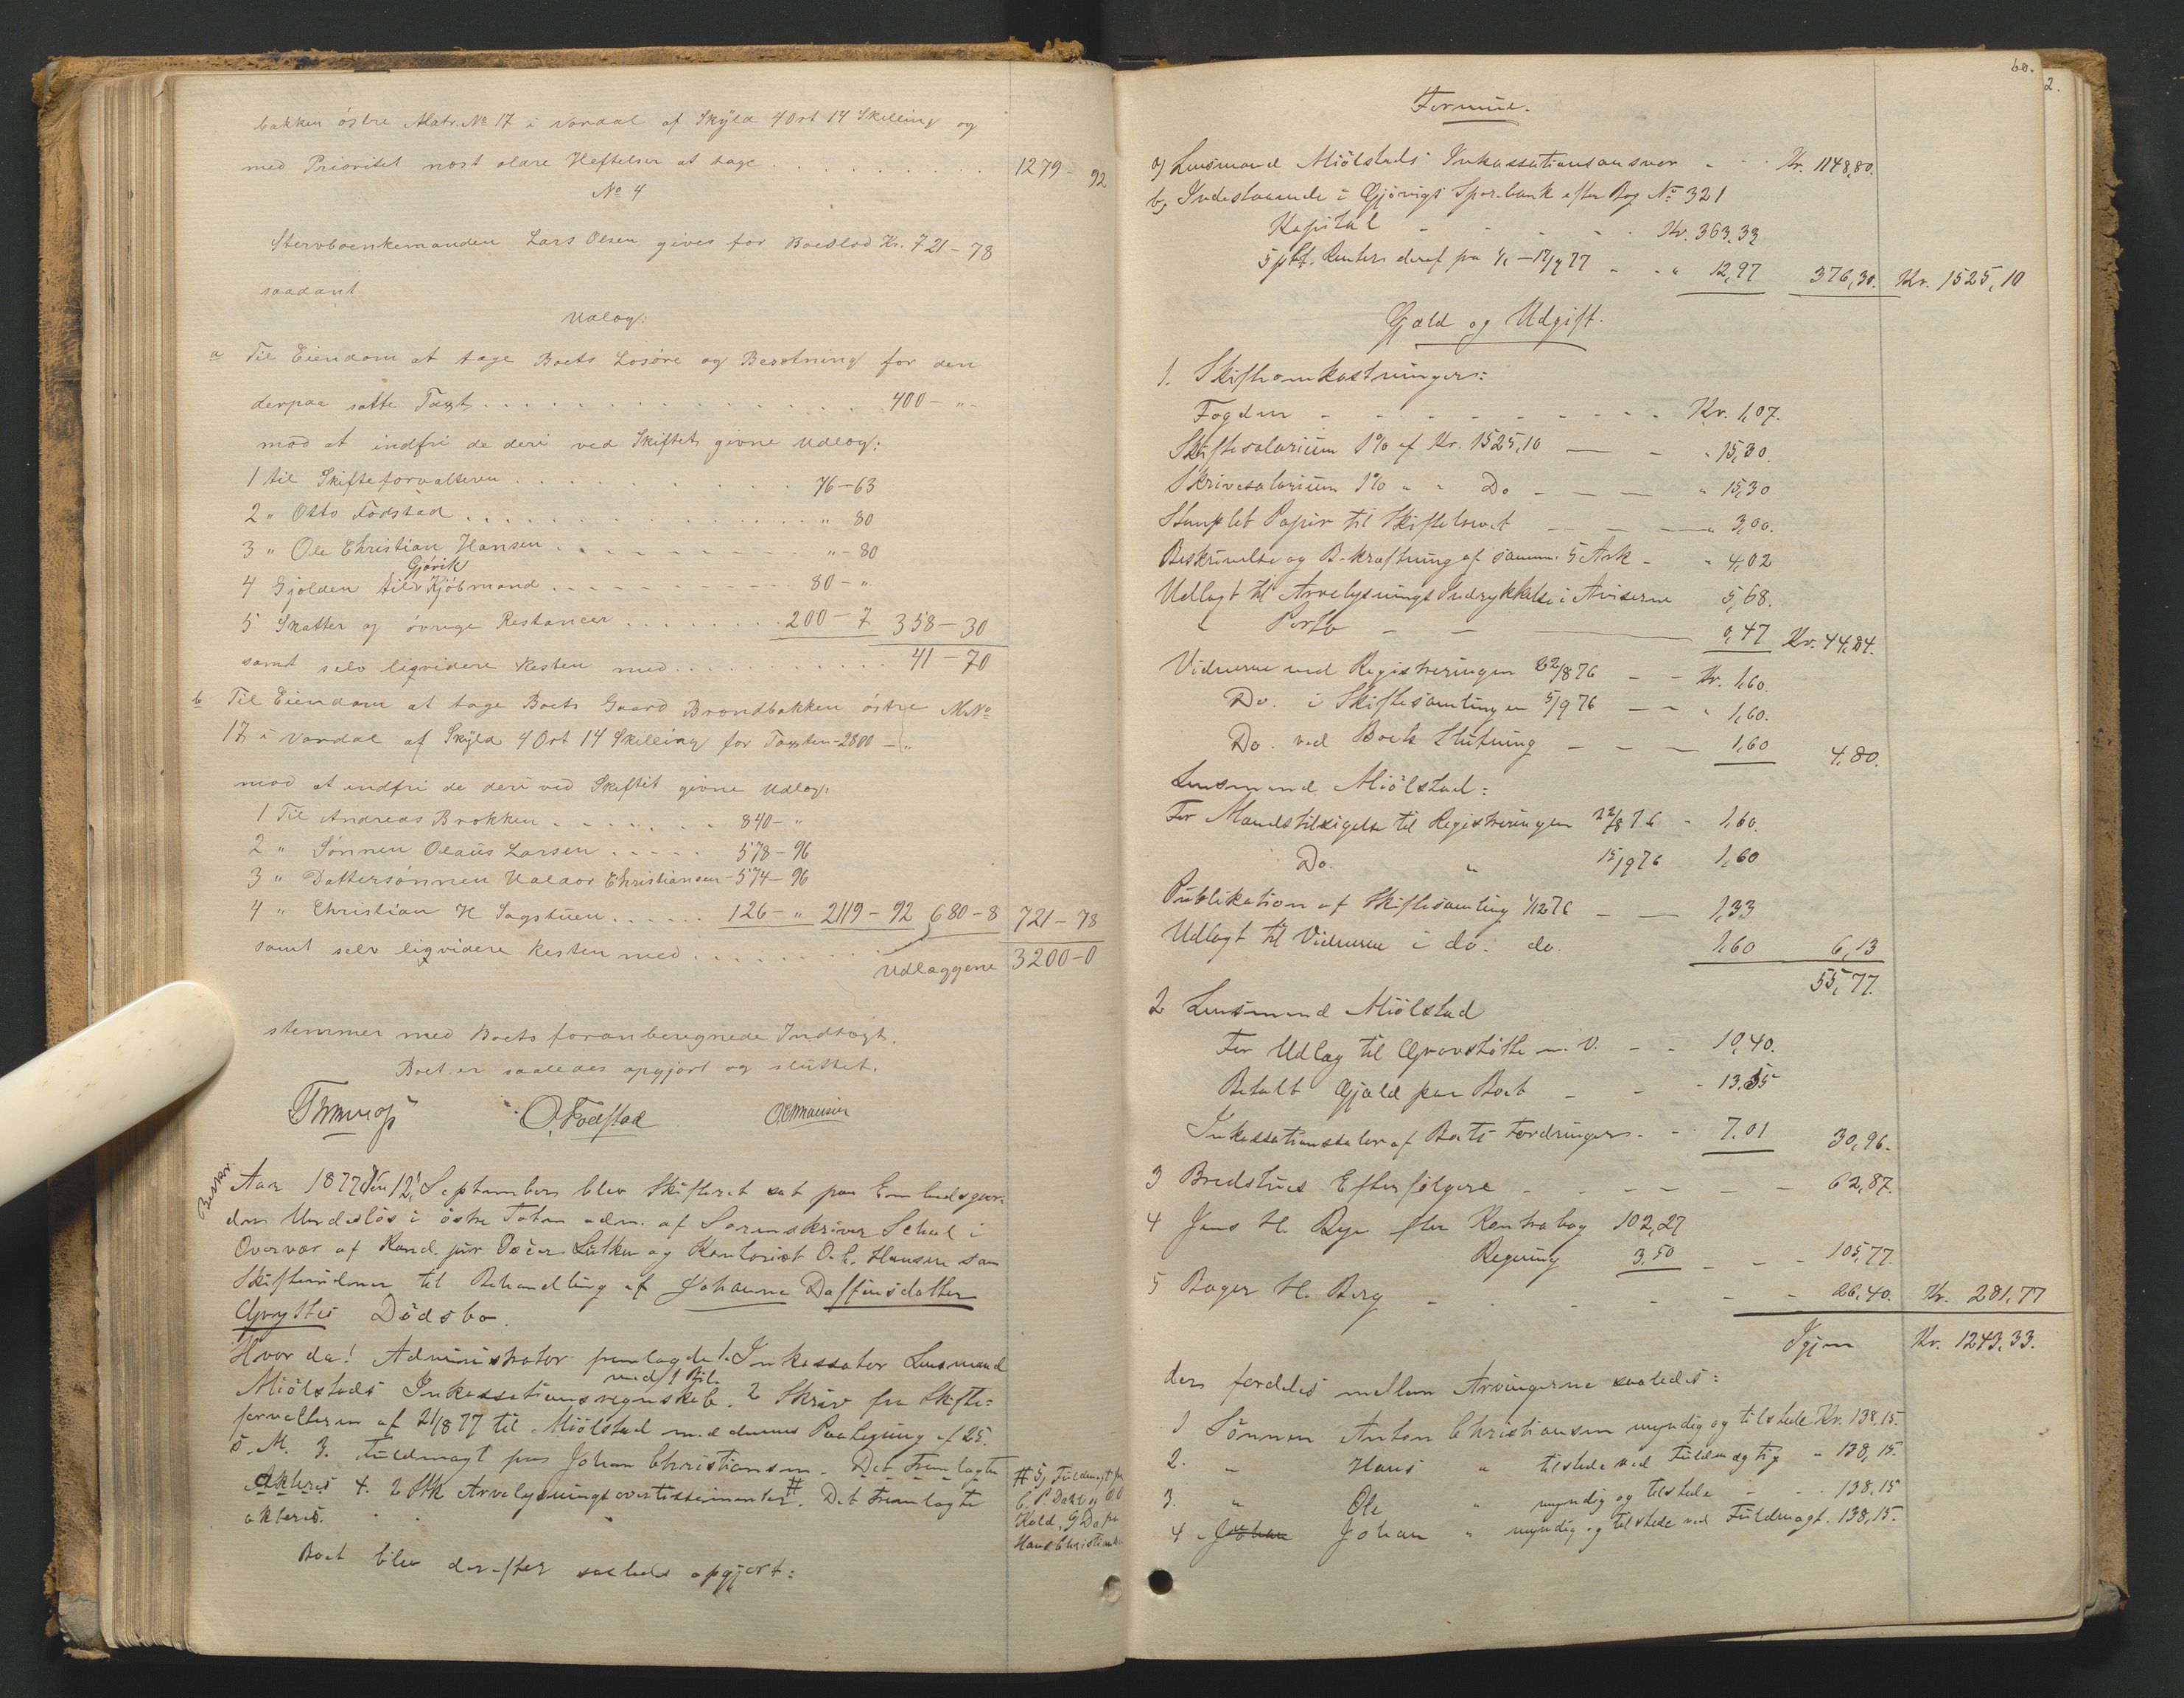 bakken östre Matr. No 17 i Vardal af Skyld 4 Ort 14 Skilling og
med Prioritet næst ældre Heftelser at tage . . . 1279 - 92
No 4
Stervboenkemanden Lars Olsen gives for Boeslod Kr. 721-78
saadant
Udlæg:
a Til Eiendom at tage Boets Løsøre og Besætning for den
derpaa satte Taxt . . . 400 - "-
mod at indfri de deri ved Skiftet givne Udlæg:
1 til Skifteforvalteren . . . 76-63
2 " Otto Fodstad . . . " 80
3 " Ole Christian Hansen . . . "-80
4 Gjælden til Gjøvik Kjöbmænd . . . 80-"
5 Skatter og øvrige Restancer . . . 200-7 358-30
samt selv liqvidere Resten med . . . 41-70
b Til Eiendom at tage Boets Gaard Brændbakken östre M. No
17 i Vardal af Skyld 4 Ort 14 Skilling for Taxten - 2800 - "
mod at indfri de deri ved Skiftet givne Udlæg:
1 Til Andreas Brokken . . . 840-"
2 " Sønnen Olaus Larsen . . . 578-96
3 " Dattersønnen Haldor Christiansen - 574-96
4 " Christian H Sagstuen . . . 126-" 2119-92 680-8 721-78
samt selv liqvidere Resten med . . .
Udlæggene 3200-0
stemmer med Boets foranberegnede Indtægt.
Boet er saaledes opgjort og sluttet.
O. Fodstad O C Hansen
Beskr.
Aar 1877 den 12 September blev Skifteret sat paa Embedsgaar-
den i östre Toten adm. af Sorenskriver Scheel i
Overvær af Kand. jur Lütken og Kontorist O. C. Hansen som
Skiftevidner til Behandling af Johanne Daffinsdatter
Grythes Dödsbo.
Hvor da! Administrator fremlagde 1. Inkassator Lensmand
Miölstads Inkassationsregnskab med 1 Bil. 2 Skriv fra Skifte-
forvalteren af 21/8 77 til Miölstad med dennes Paategning af 25.
s. M. 3. Fuldmagt fra Johan Christiansen. Det Fremlagte
akteres 4. 2 Stk Arvelysningsavertissementer #. Det Fremlagte
akteres.
# 5, Fuldmagt fra
C. P. Dahl og
Kold, 9 Do fra
Hans Christiansen
Boet blev derefter saaledes opgjort:
60.
2.
Formue.
a) Lensmand Miölstads Inkassationsansvar - - Kr. 1148,80.
b, Indestaaende i Gjöviigs Sparebank efter Bog No 321
Kapital - - - Kr. 363.33
5 pCt. Renter deraf fra 1/1 - 17/9 77 - - " 12,97 376,30. Kr. 1525,10
Gjæld og Udgift.
1. Skifteomkostninger:
Fogden - - - Kr. 1,07.
Skiftesalarium 1% af Kr. 1525,10 — - " 15,30.
Skrivesalarium 1% " " Do - — — " 15,30
Stemplet Papir til Skiftebrevet — — " 3,00.
Beskrivelse og Bekræftning af samme 5 Ark - " 4,02
Udlagt til Arvelysnings Indrykkelse i Aviserne 5,68.
" Porto - - — 0,47 Kr. 44,84.
Vidnerne ved Registreringen 22/8 76 - - Kr. 1,60.
Do. i Skiftesamlingen 5/9 76 — - " 1,60.
Do. ved Boets Slutning - — — 1,60 4,80.
Lensmand Miölstad:
For Mandstilsigelse til Registreringen 22/8 76 - 1,60.
Do. " 15/9 76 1,60
Publikation af Skiftesamling 1/12 76 - — 1,33
Udlagt til Vidnerne i do. do. 1,60 6,13
55,77.
2 Lensmand Miölstad
For Udlæg til Gravstötte m. V. - - 10,40.
Betalt Gjæld paa Boet - - - 13.55
Inkassationssalær af Boets Fordringer - - 7,01 30,96.
3 Bredstues Efterfölgere - - - — — 62,87.
4 Jens H. Bye efter Kontrabog 102,27
Regning 3,50 - - - 105,77.
5 Bager H. Berg - - - - - 26,40. Kr. 281,77
Igjen Kr. 1243,33.
der fordeles mellem Arvingerne saaledes:
1 Sönnen Anton Christiansen myndig og tilstede Kr. 138,15.
2. " Hans " tilstede ved Fuldmægtig - 138,15.
3. " Ole " myndig og tilstede - - 138,15
4 Johan Johan " myndig og tilstede ved Fuldmagt. 138,15.